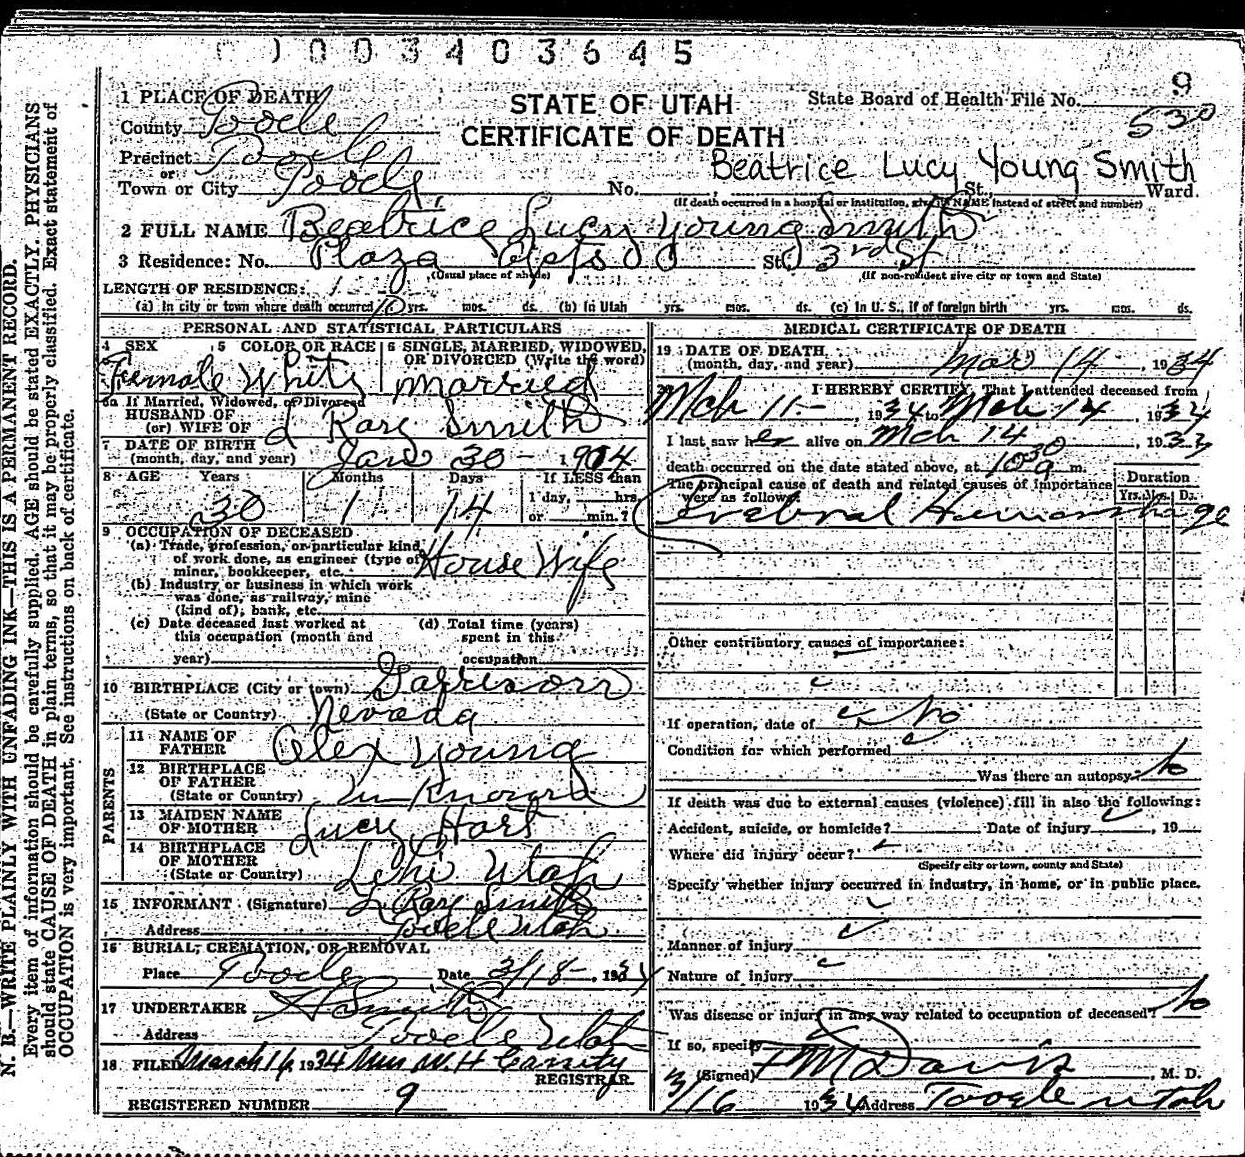 0003403645
9
1 PLACE OF DEATH
STATE OF UTAH
State Board of Health File No.
530
County Tooele
CERTIFICATE OF DEATH
Precinct Tooele
or
Beatrice Lucy Young Smith
Town or City Tooele No. , St., Ward.
(If death occurred in a hospital or institution, give its NAME instead of street and number)
2 FULL NAME Beatrice Lucy Young Smith
3 Residence: No. Plaza Apts St. 3rd St
(Usual place of abode) (If non-resident give city or town and State)
LENGTH OF RESIDENCE:
(a) In city or town where death occurred 10 yrs. mos. ds. (b) In Utah yrs. mos. ds. (c) In U. S., if of foreign birth yrs. mos. ds.
PERSONAL AND STATISTICAL PARTICULARS
4 SEX 5 COLOR OR RACE 6 SINGLE, MARRIED, WIDOWED,
OR DIVORCED (Write the word)
Female White married
6a If Married, Widowed, or Divorced
HUSBAND OF
(or) WIFE OF L Ray Smith
7 DATE OF BIRTH
(month, day, and year) Jan 30 - 1904
8 AGE Years Months Days If LESS than
1 day, hrs.
30 1 14 or min.?
9 OCCUPATION OF DECEASED
(a) Trade, profession, or particular kind
of work done, as engineer (type of House Wife
miner, bookkeeper, etc.
(b) Industry or business in which work
was done, as railway, mine
(kind of); bank, etc.
(c) Date deceased last worked at (d) Total time (years)
this occupation (month and spent in this
year) occupation
10 BIRTHPLACE (City or town) Garrison
(State or Country) Nevada
PARENTS
11 NAME OF
FATHER Alex Young
12 BIRTHPLACE
OF FATHER
(State or Country) Un Known
13 MAIDEN NAME
OF MOTHER Lucy Hart
14 BIRTHPLACE
OF MOTHER
(State or Country) Lehi Utah
15 INFORMANT (Signature) L Ray Smith
Address Tooele Utah
16 BURIAL, CREMATION, OR REMOVAL
Place Tooele Date 3/18 - 1934
17 UNDERTAKER
Address Tooele Utah
18 FILED March 16 1934
REGISTRAR
REGISTERED NUMBER 9
MEDICAL CERTIFICATE OF DEATH
19 DATE OF DEATH
(month, day, and year) Mar 14, 1934
20 I HEREBY CERTIFY, That I attended deceased from
Mch 11 -, 1934 to Mch 14, 1934
I last saw her alive on Mch 14, 1933
death occurred on the date stated above, at 10 30 a m.
The principal cause of death and related causes of importance
were as follows: Duration
Yrs. Mos. Ds.
Cerebral Hemorrhage
Other contributory causes of importance:
If operation, date of No
Condition for which performed
Was there an autopsy? No
If death was due to external causes (violence) fill in also the following:
Accident, suicide, or homicide? Date of injury , 19
Where did injury occur?
(Specify city or town, county and State)
Specify whether injury occurred in industry, in home, or in public place.
Manner of injury
Nature of injury
Was disease or injury in any way related to occupation of deceased? No
If so, specify
(Signed) Davis, M. D.
3/16 1934 Address Tooele Utah
N. B.—WRITE PLAINLY WITH UNFADING INK—THIS IS A PERMANENT RECORD.
Every item of information should be carefully supplied. AGE should be stated EXACTLY. PHYSICIANS
should state CAUSE OF DEATH in plain terms, so that it may be properly classified. Exact statement of
OCCUPATION is very important. See instructions on back of certificate.